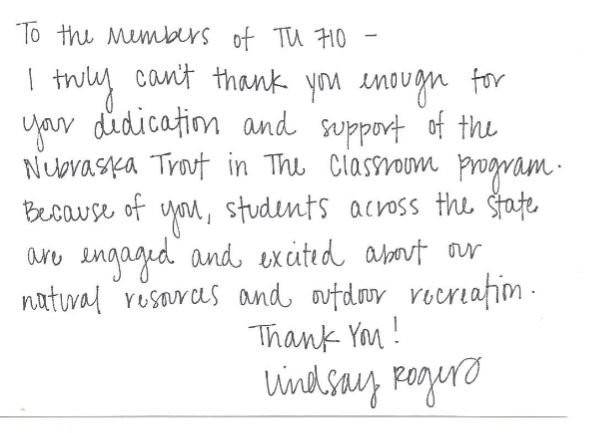 To the Members of TU 710 -
I truly can't thank you enough for
your dedication and support of the
Nebraska Trout in The Classroom program.
Because of you, students across the state
are engaged and excited about our
natural resources and outdoor recreation.
Thank You!
Lindsay Rogers